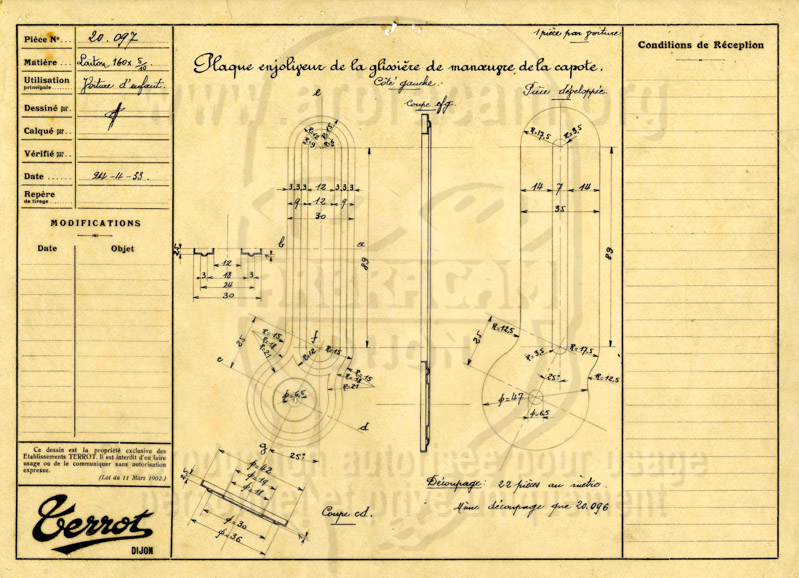 Pièce No... 20.097
Matière... Laiton 160 x 5/10
Utilisation principale... Voiture d'enfant.
Dessiné par..
Calqué par..
Vérifié par..
Date ...... 24-4-53.
Repère de tirage......
MODIFICATIONS
Date Objet
Ce dessin est la propriété exclusive des
Etablissements TERROT. Il est interdit d'en faire
usage ou de le communiquer sans autorisation
expresse.
(Loi du 11 Mars 1902.)
Terrot
DIJON
1 pièce par voiture.
Plaque enjoliveur de la glissière de manœuvre de la capote.
Côté gauche.
Coupe efg.
Pièce développée.
e
R=15
R=12
R=9
3 3 3 12 3 3 3
9 12 9
30
b
a
89
12
3 18 3
24
30
25
R=15
R=18
R=21
f
R=12
R=15
c
R=15
R=18
R=21
φ=6,5
d
g
25°
φ=42
φ=19
φ=11
φ=30
φ=36
Coupe cd.
R=17,5
R=3,5
14 7 14
35
89
25
R=12,5
R=3,5
R=17,5
25°
R=12,5
φ=47
φ=6,5
Découpage: 22 pièces au mètre.
Même découpage que 20.096
Conditions de Réception